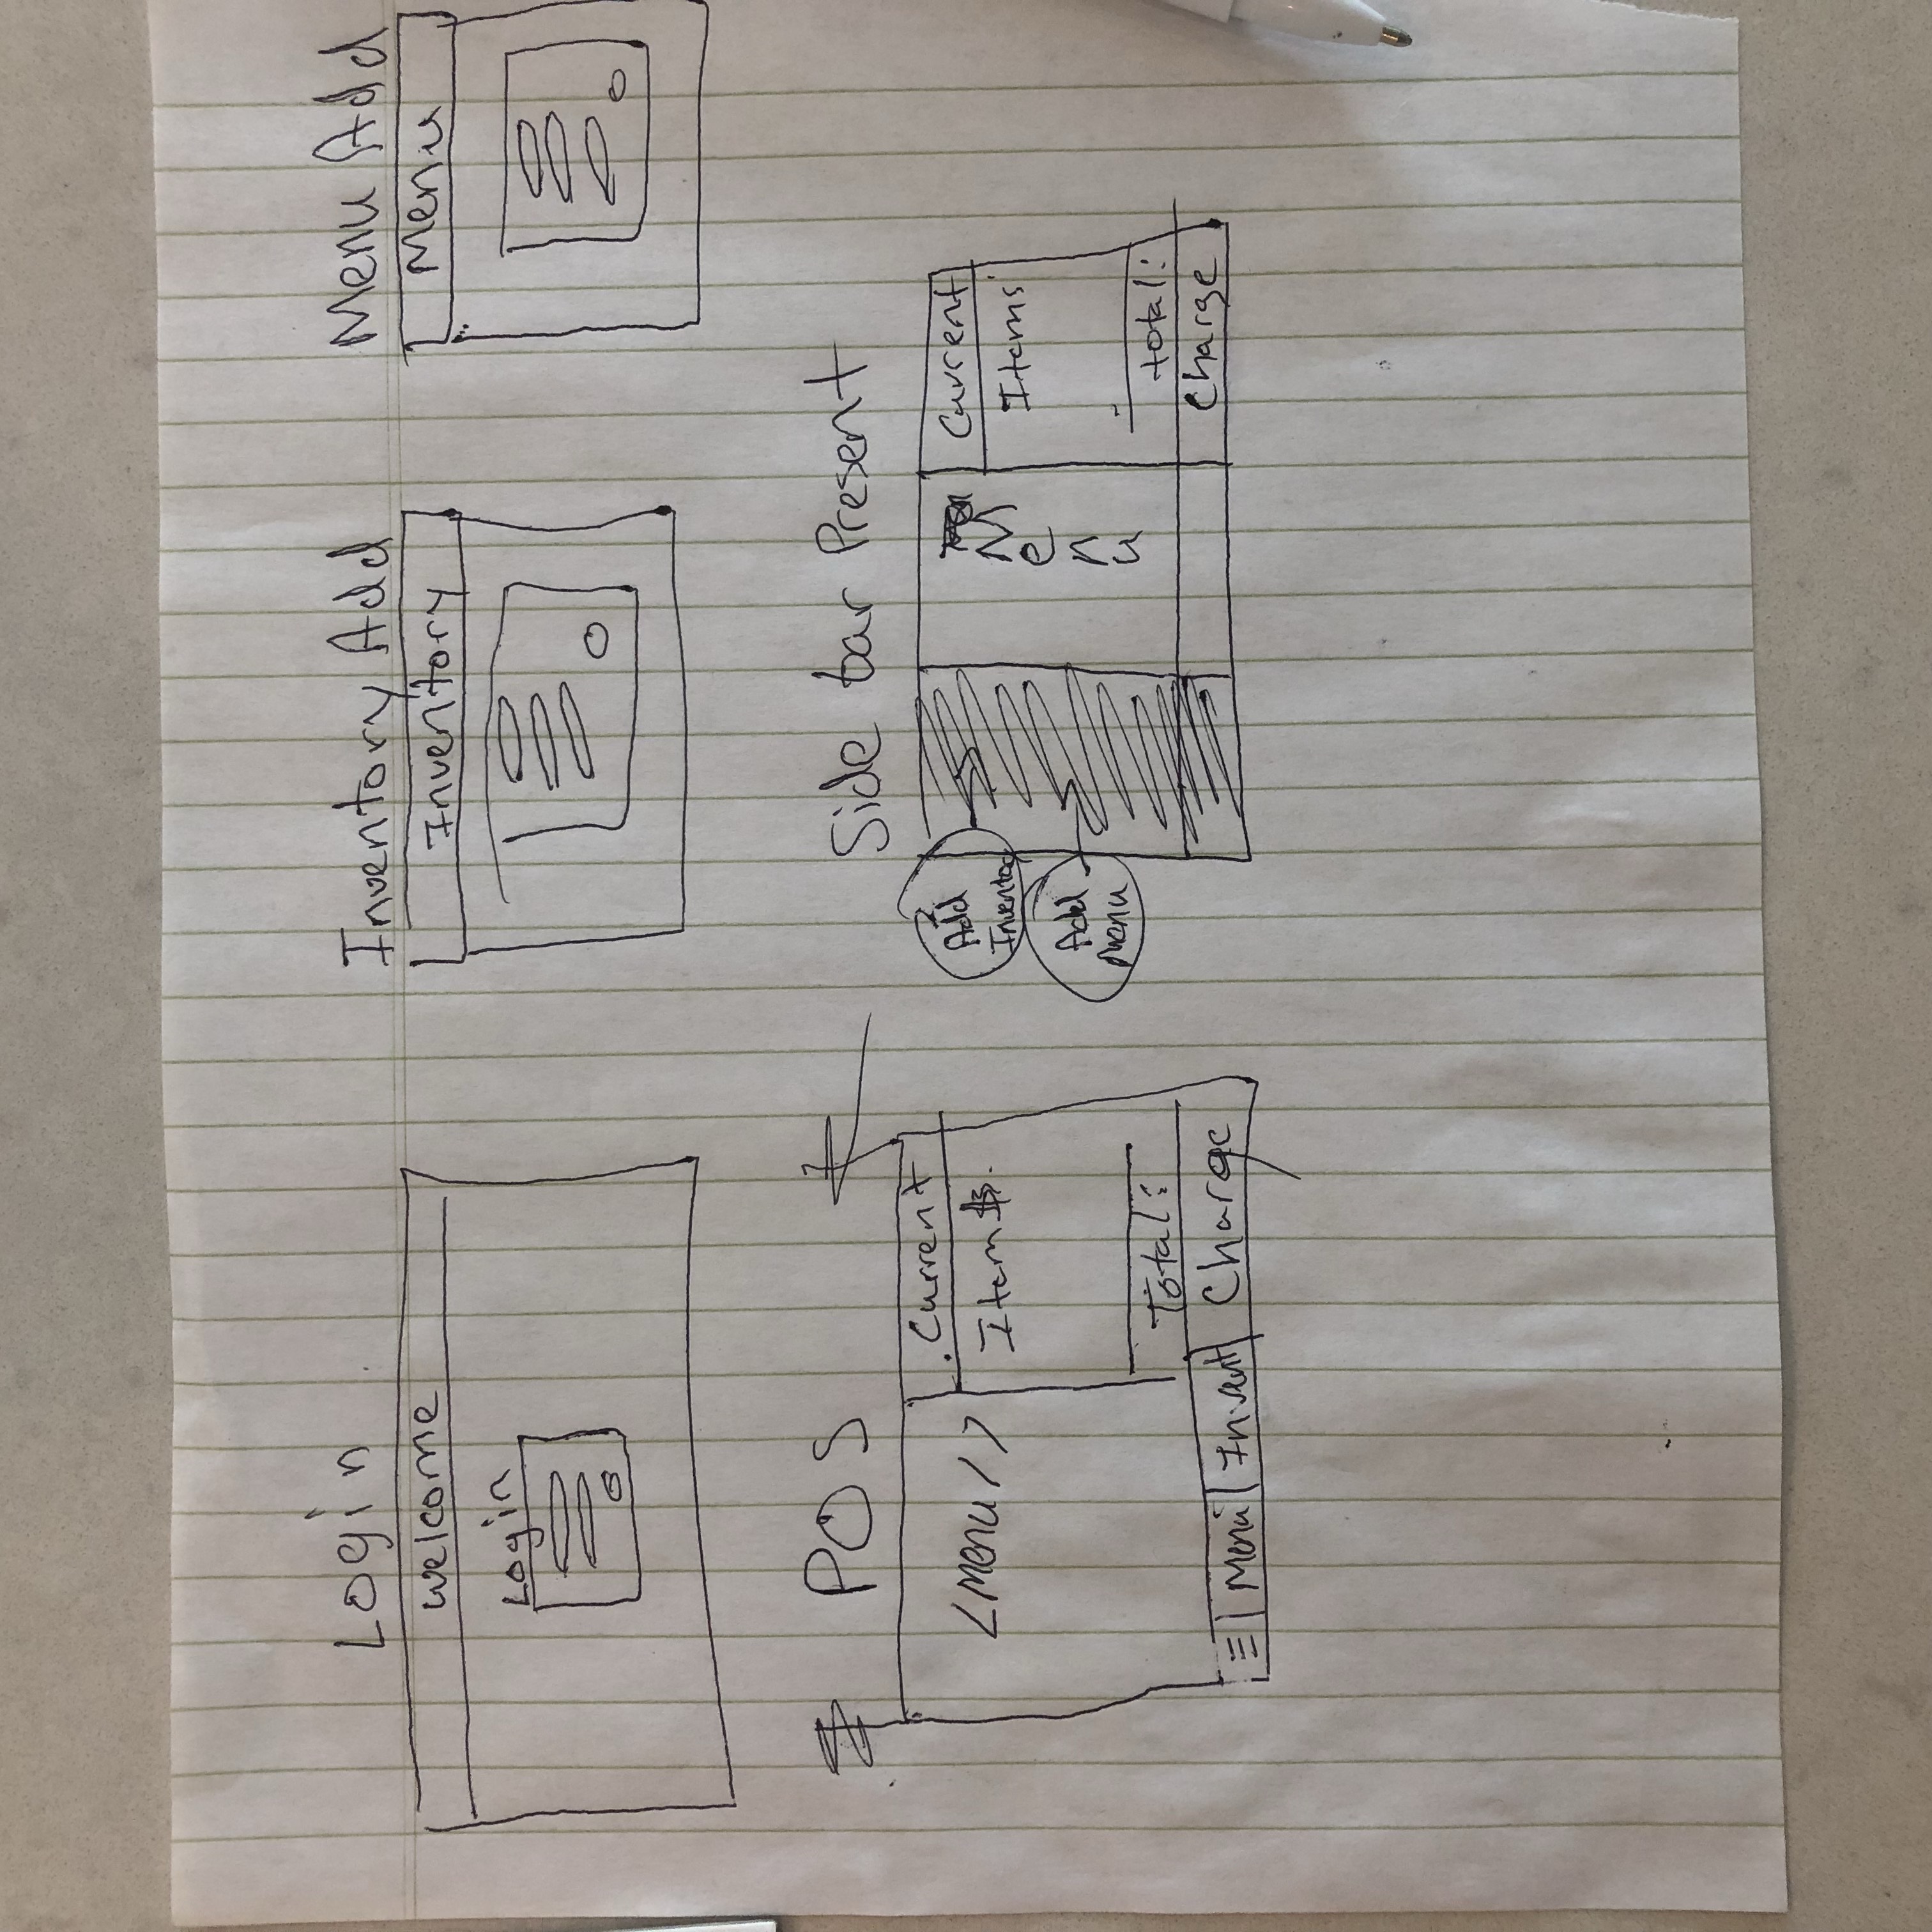 Login
welcome
Login
Inventory Add
Inventory
Menu Add
Menu
POS
<Menu/>
Current
Items
Total:
Menu
Invent
Charge
Side bar Present
Add
Inventory
Add
Menu
Menu
Current
Items
total:
Charge